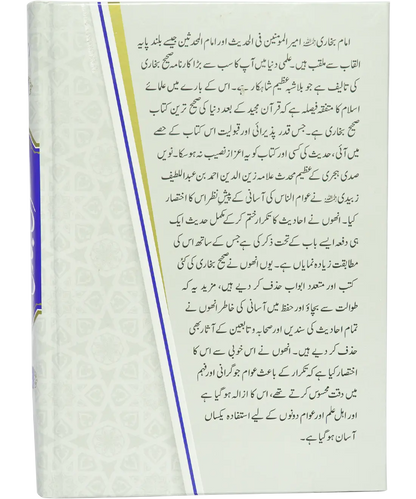 امام بخاری رحمہ اللہ امیر المؤمنین فی الحدیث اور امام المحدثین جیسے بلند پایہ
القاب سے ملقب ہیں۔ علمی دنیا میں آپ کا سب سے بڑا کارنامہ صحیح بخاری
کی تالیف ہے جو بلاشبہ عظیم شاہکار ہے۔ اس کے بارے میں علمائے
اسلام کا متفقہ فیصلہ ہے کہ قرآن مجید کے بعد دنیا کی صحیح ترین کتاب
صحیح بخاری ہے۔ جس قدر پذیرائی اور قبولیت اس کتاب کے حصے
میں آئی، حدیث کی کسی اور کتاب کو یہ اعزاز نصیب نہ ہو سکا۔ نویں
صدی ہجری کے عظیم محدث علامہ زین الدین احمد بن عبداللطیف
زبیدی رحمہ اللہ نے عوام الناس کی آسانی کے پیش نظر اس کا اختصار
کیا۔ انھوں نے احادیث کا تکرار ختم کر کے مکمل حدیث ایک
ہی دفعہ ایسے باب کے تحت ذکر کی ہے جس کے ساتھ اس کی
مطابقت زیادہ نمایاں ہے۔ یوں انھوں نے صحیح بخاری کی کئی
کتب اور متعدد ابواب حذف کر دیے ہیں، مزید یہ کہ
طوالت سے بچاؤ اور حفظ میں آسانی کی خاطر انھوں نے
تمام احادیث کی سندیں اور صحابہ و تابعین کے آثار بھی
حذف کر دیے ہیں۔ انھوں نے اس خوبی سے اس کا
اختصار کیا ہے کہ تکرار کے باعث عوام جو گرانی اور فہم
میں دقت محسوس کرتے تھے، اس کا ازالہ ہو گیا ہے
اور اہل علم اور عوام دونوں کے لیے استفادہ یکساں
آسان ہو گیا ہے۔